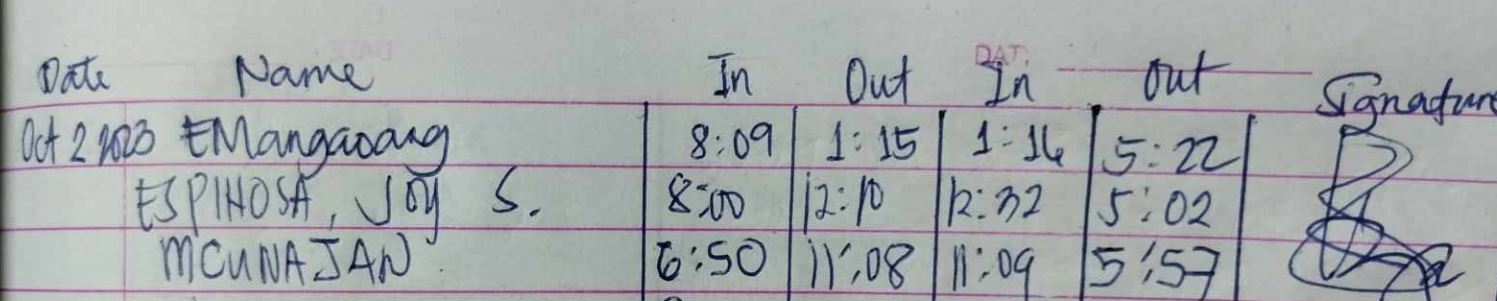 Date Name In Out In Out Signature
Oct 2 2023 EMangaoang 8:09 1:15 1:16 5:22
ESPINOSA, Joy S. 8:00 12:10 12:32 5:02
MCUNAJAN 6:50 11:08 11:09 5:57